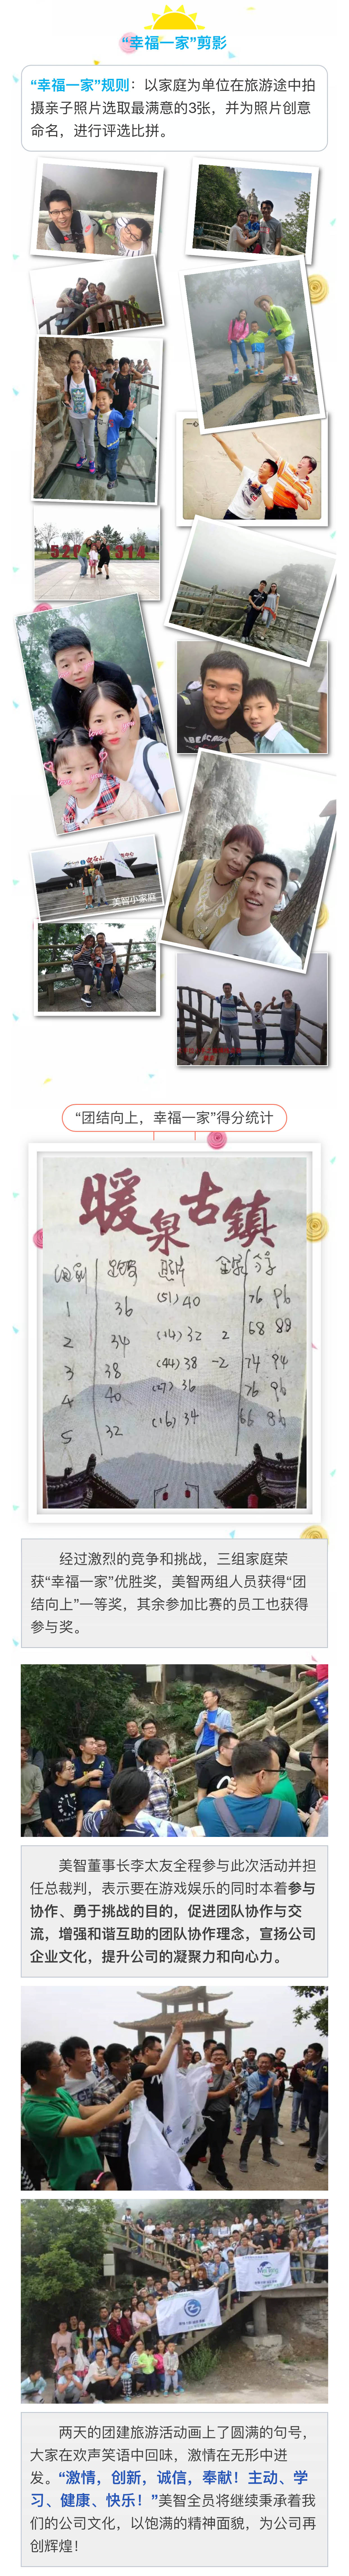 “幸福一家”剪影
“幸福一家”规则：以家庭为单位在旅游途中拍
摄亲子照片选取最满意的3张，并为照片创意
命名，进行评选比拼。
美智小家庭
“团结向上，幸福一家”得分统计
暖泉古镇
1 36 (51) 40 76 96
2 34 (14) 32 2 68 88
3 38 (44) 38 -2 74 94
4 40 (27) 36 76 96
5 32 (16) 34 66 86
经过激烈的竞争和挑战，三组家庭荣
获“幸福一家”优胜奖，美智两组人员获得“团
结向上”一等奖，其余参加比赛的员工也获得
参与奖。
美智董事长李太友全程参与此次活动并担
任总裁判，表示要在游戏娱乐的同时本着参与
协作、勇于挑战的目的，促进团队协作与交
流，增强和谐互助的团队协作理念，宣扬公司
企业文化，提升公司的凝聚力和向心力。
两天的团建旅游活动画上了圆满的句号，
大家在欢声笑语中回味，激情在无形中迸
发。“激情，创新，诚信，奉献！主动、学
习、健康、快乐！”美智全员将继续秉承着我
们的公司文化，以饱满的精神面貌，为公司再
创辉煌！